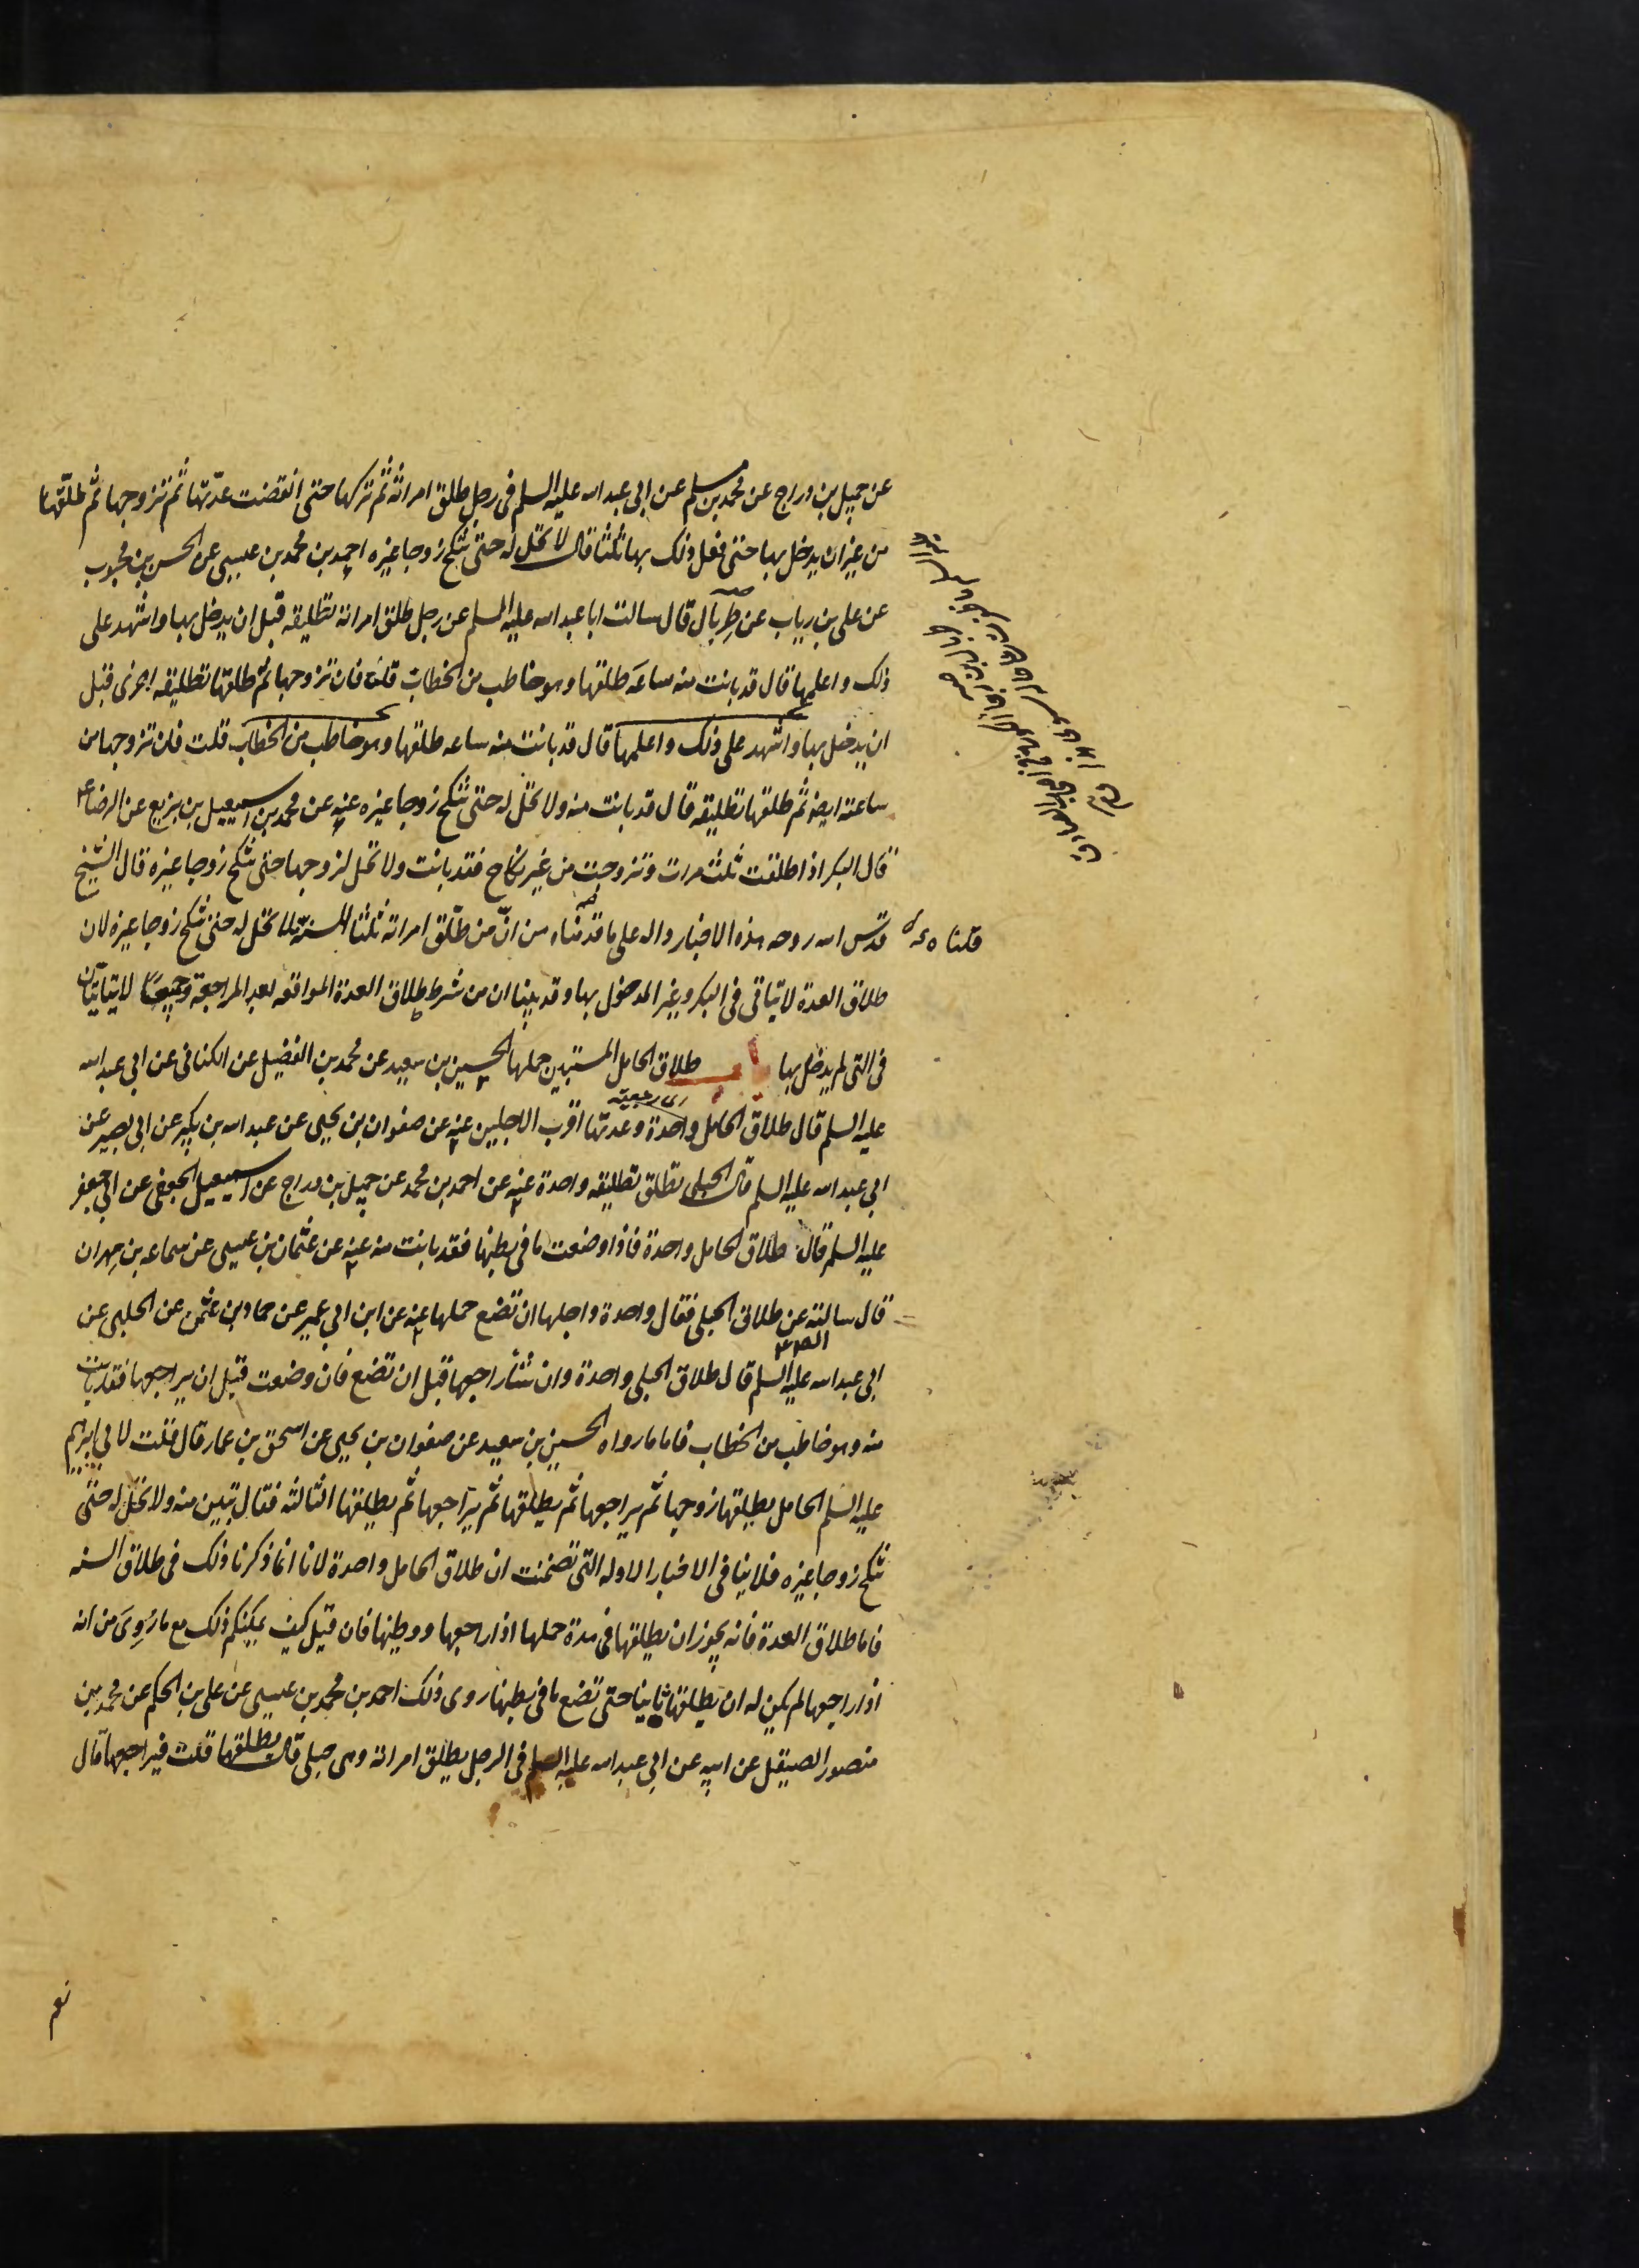 عن جميل بن دراج عن محمد بن مسلم عن ابى عبد الله عليه السلم فى رجل طلق امراته ثم تركها حتى انقضت عدتها ثم تزوجها ثم طلقها
من غير ان يدخل بها حتى فعل ذلك بها ثلثا قال لا تحل له حتى تنكح زوجا غيره احمد بن محمد بن عيسى عن الحسن بن محبوب
عن على بن رياب عن طربال قال سالت ابا عبد الله عليه السلم عن رجل طلق امراته تطليقه قبل ان يدخل بها واشهد على
ذلك واعلمها قال قد بانت منه ساعه طلقها وهو خاطب من الخطاب قلت فان تزوجها ثم طلقها تطليقه اخرى قبل
ان يدخل بها واشهد على ذلك واعلمها قال قد بانت منه ساعه طلقها وهو خاطب من الخطاب قلت فان تزوجها من
ساعته ايضا ثم طلقها تطليقه قال قد بانت منه ولا تحل له حتى تنكح زوجا غيره عنه عن محمد بن اسمعيل بن بزيع عن الرضا ع
قال البكر اذا طلقت ثلث مرات وتزوجت من غير نكاح فقد بانت ولا تحل لزوجها حتى تنكح زوجا غيره قال الشيخ
قدس الله روحه هذه الاخبار داله على ما قدمناه من ان من طلق امراته ثلثا للسنة لا تحل له حتى تنكح زوجا غيره لان
طلاق العدة لا يتاتى فى البكر وغير المدخول بها وقد بينا ان من شرط طلاق العدة المواقعه بعد المراجعة وجميعا لا يتاتيان
فى التى لم يدخل بها باب طلاق الحامل المستبين حملها الحسين بن سعيد عن محمد بن الفضيل عن الكنانى عن ابى عبد الله
عليه السلم قال طلاق الحامل واحدة وعدتها اقرب الاجلين عنه عن صفوان بن يحيى عن عبد الله بن بكير عن ابى بصير عن
ابى عبد الله عليه السلم قال الحبلى تطلق تطليقه واحدة عنه عن احمد بن محمد عن جميل بن دراج عن اسمعيل الجعفى عن ابى جعفر
عليه السلم قال طلاق الحامل واحدة فاذا وضعت ما فى بطنها فقد بانت منه عنه عن عثمان بن عيسى عن سماعه بن مهران
قال سالته عن طلاق الحبلى فقال واحدة واجلها ان تضع حملها عنه عن ابن ابى عمير عن حماد بن عثمن عن الحلبى عن
ابى عبد الله عليه السلم قال طلاق الحبلى واحدة وان شاء راجعها قبل ان تضع فان وضعت قبل ان يراجعها فقد بانت
منه وهو خاطب من الخطاب فاما ما رواه الحسين بن سعيد عن صفوان بن يحيى عن اسحق بن عمار قال قلت لابى ابرهيم
عليه السلم الحامل يطلقها زوجها ثم يراجعها ثم يطلقها ثم يراجعها ثم يطلقها الثالثه فقال تبين منه ولا تحل له حتى
تنكح زوجا غيره فلا ينافى الاخبار الاوله التى تضمنت ان طلاق الحامل واحدة لانا انما ذكرنا ذلك فى طلاق السنه
فاما طلاق العدة فانه يجوز ان يطلقها فى مدة حملها اذا راجعها ووطئها فان قيل كيف يمكنكم ذلك مع ما روى من انه
اذا راجعها لم يكن له ان يطلقها ثانيا حتى تضع ما فى بطنها روى ذلك احمد بن محمد بن عيسى عن على بن الحكم عن محمد بن
منصور الصيقل عن ابيه عن ابى عبد الله عليه السلم فى الرجل يطلق امراته وهى حبلى قال يطلقها قلت فيراجعها قال
نعم